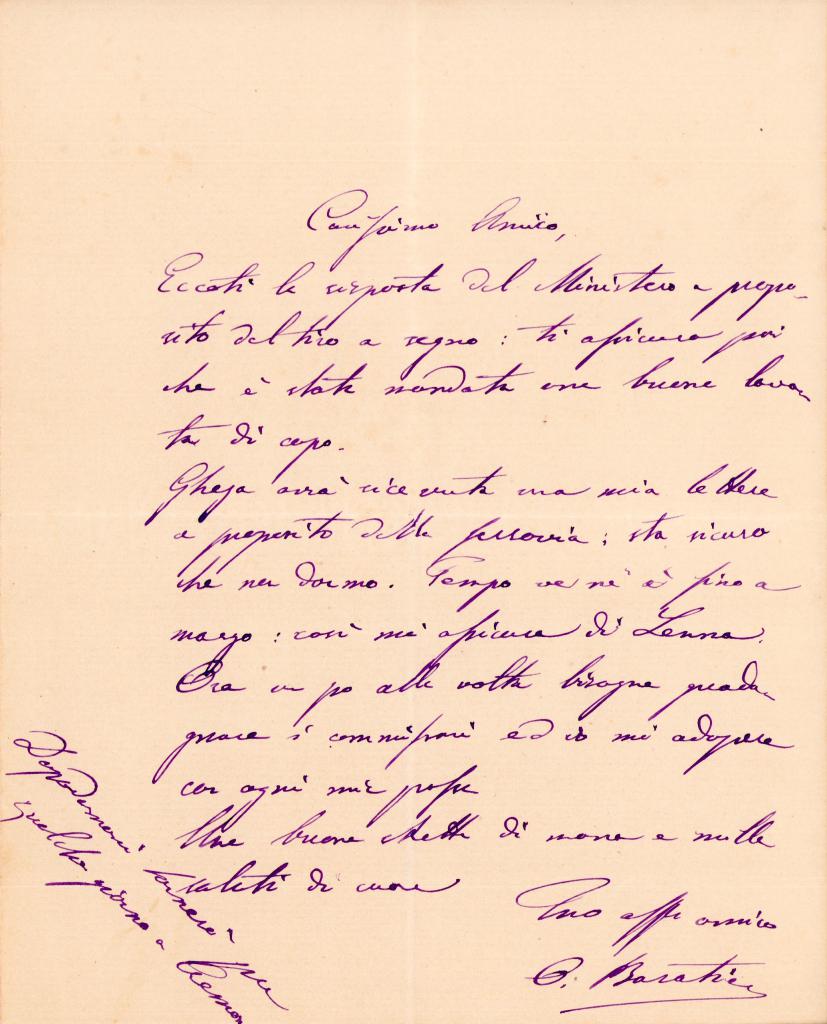 Carissimo Amico,
Eccoti la risposta del Ministero a propo-
sito del tiro a segno: ti assicuro poi
che è stata mandata una buona lava-
ta di capo.
Ghega avrà ricevuta una mia lettera
a proposito della ferrovia; sta sicuro
che non dormo. Tempo ve n'è fino a
marzo: così mi assicura di Lenna.
Ora un po alla volta bisogna guada-
gnare i commissari ed io mi adopero
con ogni mia possa
Una buona stretta di mano e mille
saluti di cuore
Tuo affº amico
O. Baratieri
Dopodomani tornerò per
qualche giorno a